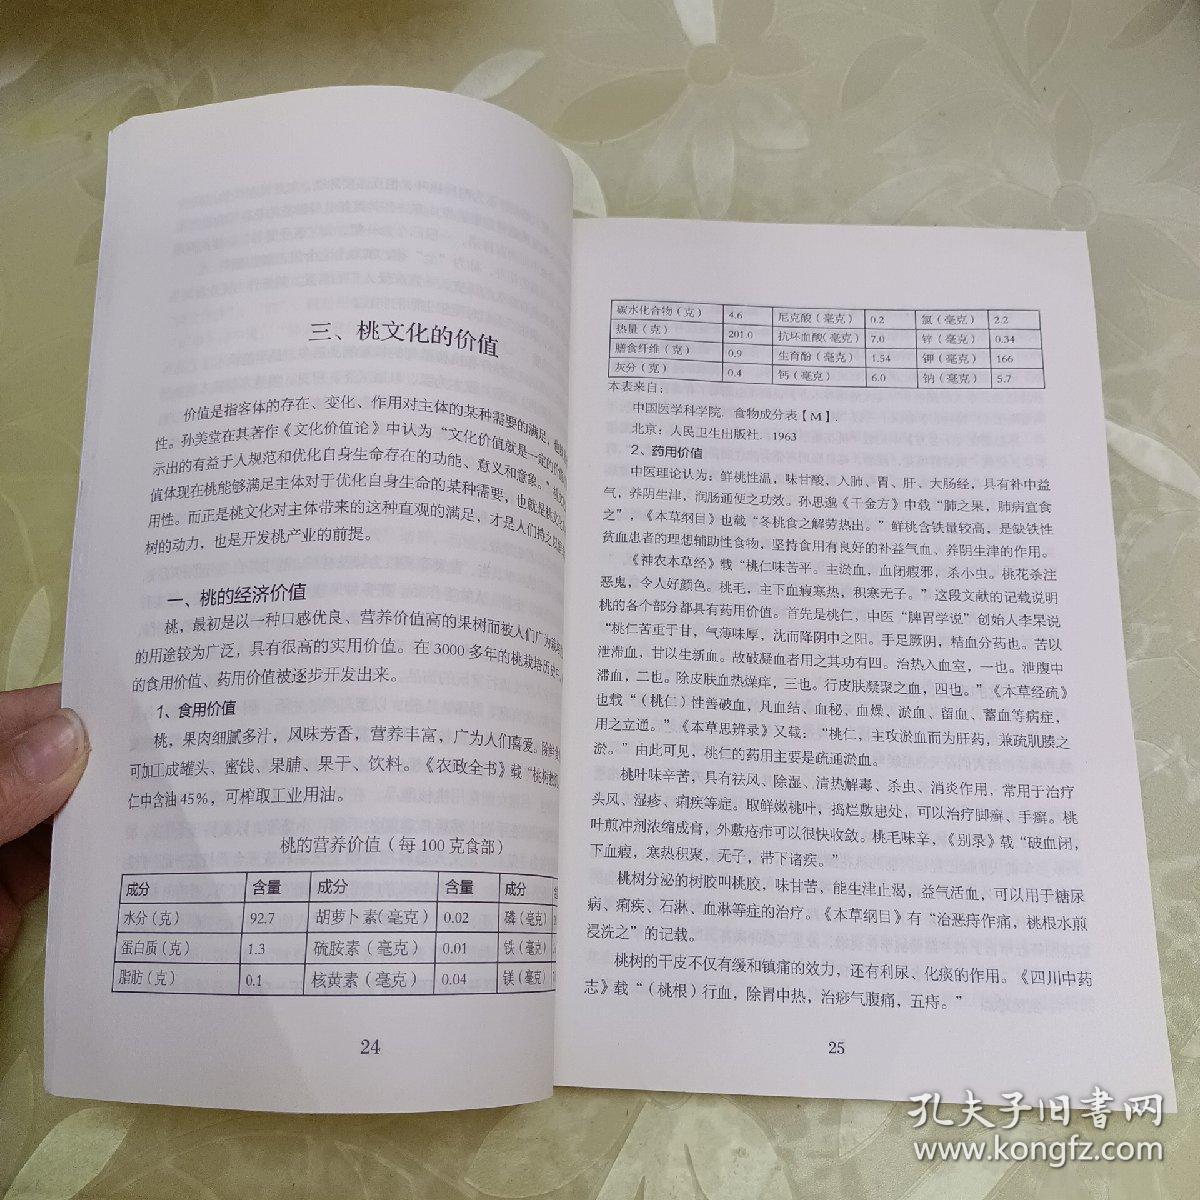 三、桃文化的价值
价值是指客体的存在、变化、作用对主体的某种需要的满足,
性。孙美堂在其著作《文化价值论》中认为“文化价值就是一定的
示出的有益于人规范和优化自身生命存在的功能、意义和意象。”
值体现在桃能够满足主体对于优化自身生命的某种需要,也就是桃文化
用性。而正是桃文化对主体带来的这种直观的满足,才是人们
树的动力,也是开发桃产业的前提。
一、桃的经济价值
桃,最初是以一种口感优良、营养价值高的果树而被人们广为
的用途较为广泛,具有很高的实用价值。在 3000 多年的桃栽培历史
的食用价值、药用价值被逐步开发出来。
1、食用价值
桃,果肉细腻多汁,风味芳香,营养丰富,广为人们喜爱。除鲜食
可加工成罐头、蜜饯、果脯、果干、饮料。《农政全书》载“桃
仁中含油 45%,可榨取工业用油。
桃的营养价值(每 100 克食部)
成分 含量 成分 含量 成分
水分(克) 92.7 胡萝卜素(毫克) 0.02 磷(毫克)
蛋白质(克) 1.3 硫胺素(毫克) 0.01 铁(毫克)
脂肪(克) 0.1 核黄素(毫克) 0.04 镁(毫克)
24
碳水化合物(克) 4.6 尼克酸(毫克) 0.2 氯(毫克) 2.2
热量(克) 201.0 抗坏血酸(毫克) 7.0 锌(毫克) 0.34
膳食纤维(克) 0.9 生育酚(毫克) 1.54 钾(毫克) 166
灰分(克) 0.4 钙(毫克) 6.0 钠(毫克) 5.7
本表来自:
中国医学科学院. 食物成分表【M】.
北京:人民卫生出版社. 1963
2、药用价值
中医理论认为:鲜桃性温,味甘酸,入肺、胃、肝、大肠经,具有补中益
气,养阴生津,润肠通便之功效。孙思邈《千金方》中载“肺之果,肺病宜食
之”,《本草纲目》也载“冬桃食之解劳热出。”鲜桃含铁量较高,是缺铁性
贫血患者的理想辅助性食物,坚持食用有良好的补益气血、养阴生津的作用。
《神农本草经》载“桃仁味苦平。主淤血,血闭瘕邪,杀小虫。桃花杀注
恶鬼,令人好颜色。桃毛,主下血瘕寒热,积寒无子。”这段文献的记载说明
桃的各个部分都具有药用价值。首先是桃仁,中医“脾胃学说”创始人李杲说
“桃仁苦重于甘,气薄味厚,沈而降阴中之阳。手足厥阴,精血分药也。苦以
泄滞血,甘以生新血。故破凝血者用之其功有四。治热入血室,一也。泄腹中
滞血,二也。除皮肤血热燥痒,三也。行皮肤凝聚之血,四也。”《本草经疏》
也载“(桃仁)性善破血,凡血结、血秘、血燥、淤血、留血、蓄血等病症,
用之立通。”《本草思辨录》又载:“桃仁,主攻淤血而为肝药,兼疏肌腠之
淤。”由此可见,桃仁的药用主要是疏通淤血。
桃叶味辛苦,具有祛风、除湿、清热解毒、杀虫、消炎作用,常用于治疗
头风、湿疹、痢疾等症。取鲜嫩桃叶,捣烂敷患处,可以治疗脚癣、手癣。桃
叶煎冲剂浓缩成膏,外敷疮疖可以很快收敛。桃毛味辛,《别录》载“破血闭,
下血瘕,寒热积聚,无子,带下诸疾。”
桃树分泌的树胶叫桃胶,味甘苦、能生津止渴,益气活血,可以用于糖尿
病、痢疾、石淋、血淋等症的治疗。《本草纲目》有“治恶疖作痛,桃根水煎
浸洗之”的记载。
桃树的干皮不仅有缓和镇痛的效力,还有利尿、化痰的作用。《四川中药
志》载“(桃根)行血,除胃中热,治痧气腹痛,五痔。”
25
孔夫子旧书网
www.kongfz.com